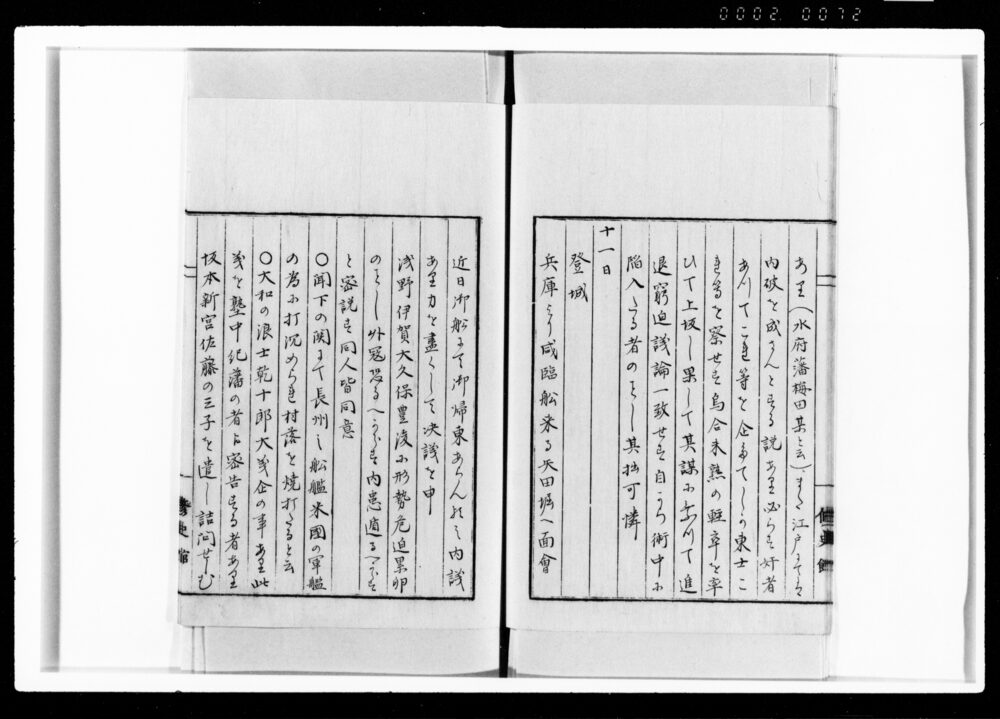 0002 0072
あり(水府藩梅田某と云)、また江戸にては
内破を成さんとする説あり必らす奸者
ありてこれ等を企たてしか東士こ
れらを察せす烏合未熟の軽卒を率
ひて上坂し果して其謀に陥りて進
退窮迫議論一致せす自から術中に
陥入たる者のことし其拙可憐
十一日
登城
兵庫より咸臨船来る矢田堀へ面會
近日御船にて御帰東あらん歟之内議
あり力を盡くして決議を申
浅野伊賀大久保豊後に形勢危迫累卵
のことし外冦恐るへからす内患逭るへからす
と密説す同人皆同意
〇聞下の関にて長州之舩艦米國の軍艦
の為に打沈められ村落を焼打たると云
〇大和の浪士乾十郎大義企の事あり此
義を塾中紀藩の者に密告する者あり
坂本新宮佐藤の三子を遣し詰問せしむ
修史館
修史館